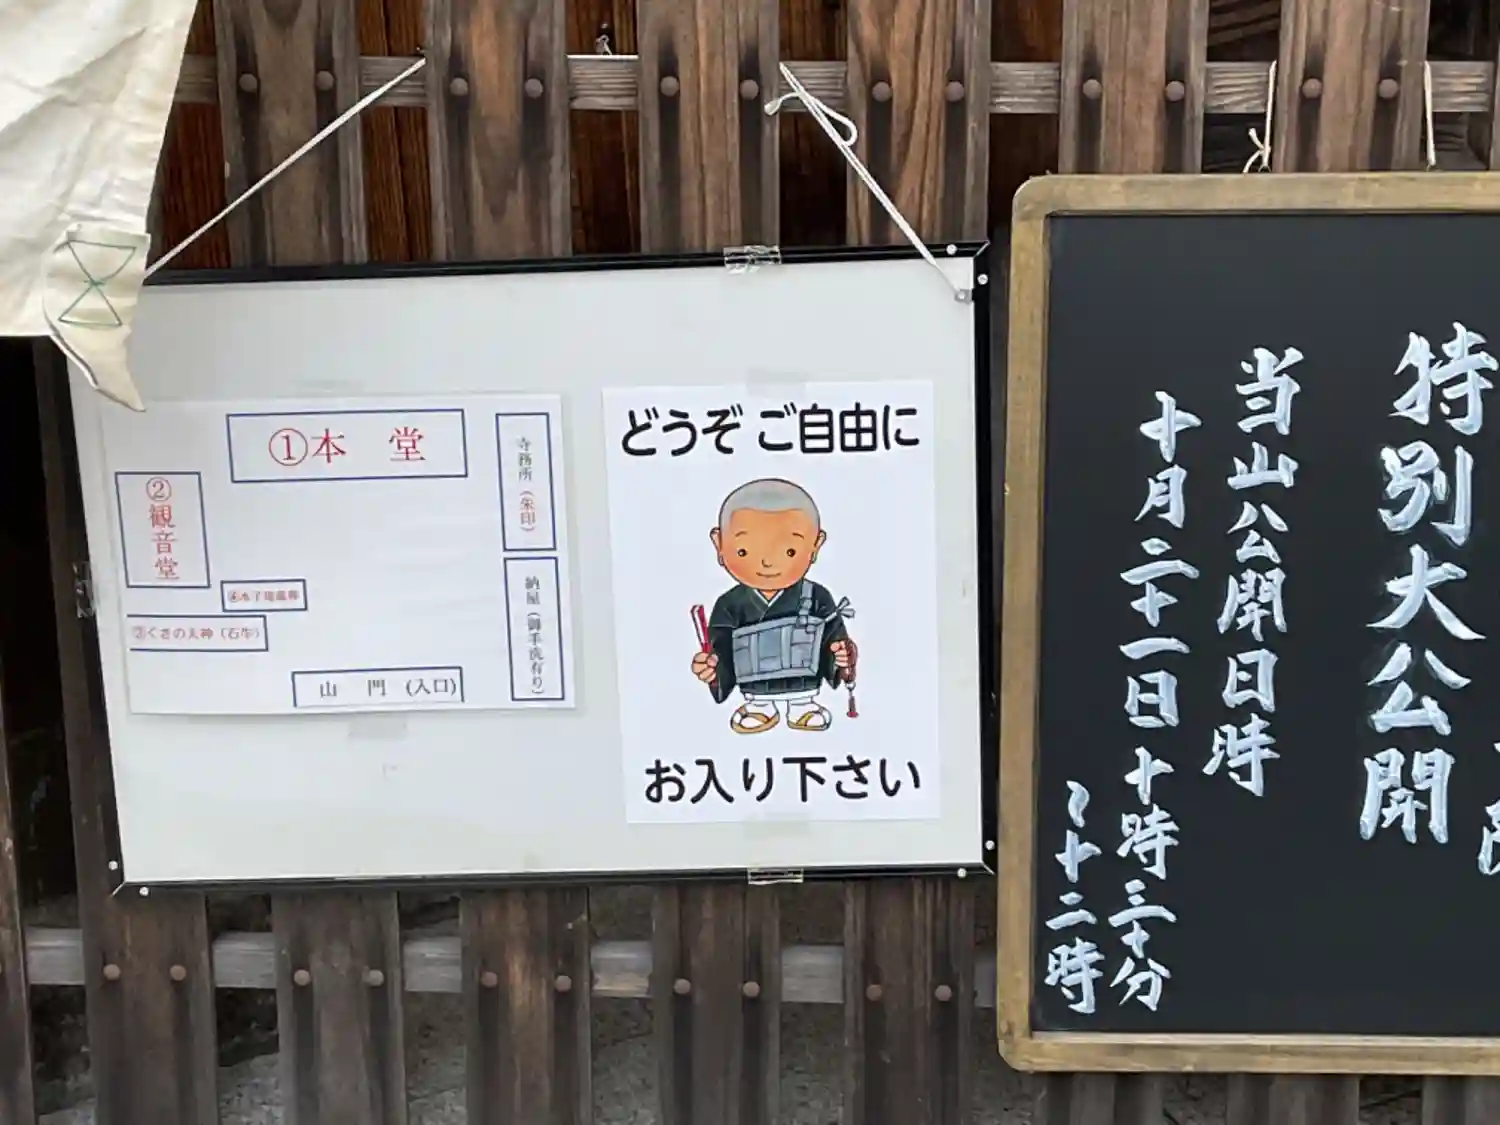 ①本 堂
②観音堂
寺務所（朱印）
④水子地蔵尊
③くさの天神（石牛）
納屋（御手洗有り）
山 門 (入口)
どうぞ ご自由に
お入り下さい
特別大公開
当山公開日時
十月二十一日十時三十分
〜十二時